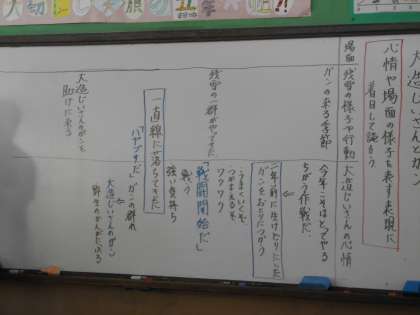 大造じいさんとガン
心情や場面の様子を表す表現に
着目して読もう
場面
残雪の様子や行動
大造じいさんの心情
ガンの来る季節
今年こそはとってやる
ちがう作戦だ。
二年前に生けどりにした
ガンをおとりにつかう
・うまくいくぞ
つかまえるぞ
ワクワク
残雪の一群がやってきた
「戦闘開始だ」
戦う
強い気持ち
一直線に落ちてきた
「ハヤブサだ」
ガンの群れ
大造じいさんのガンを
助けに来る
大造じいさんのガン
野生のかんがにぶる